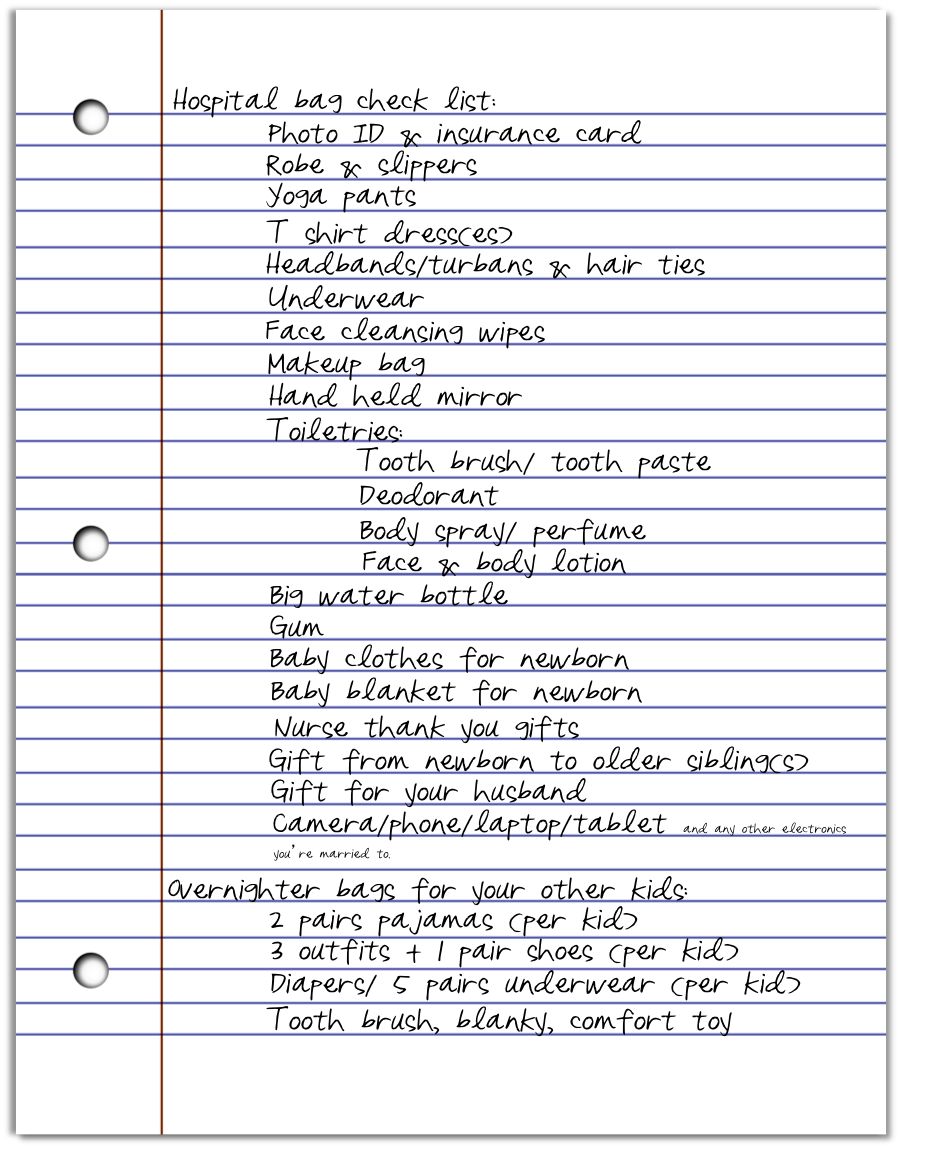 Hospital bag check list:
Photo ID & insurance card
Robe & slippers
Yoga pants
T shirt dress(es)
Headbands/turbans & hair ties
Underwear
Face cleansing wipes
Makeup bag
Hand held mirror
Toiletries:
Tooth brush/ tooth paste
Deodorant
Body spray/ perfume
Face & body lotion
Big water bottle
Gum
Baby clothes for newborn
Baby blanket for newborn
Nurse thank you gifts
Gift from newborn to older sibling(s)
Gift for your husband
Camera/phone/laptop/tablet and any other electronics
you're married to.
Overnighter bags for your other kids:
2 pairs pajamas (per kid)
3 outfits + 1 pair shoes (per kid)
Diapers/ 5 pairs underwear (per kid)
Tooth brush, blanky, comfort toy